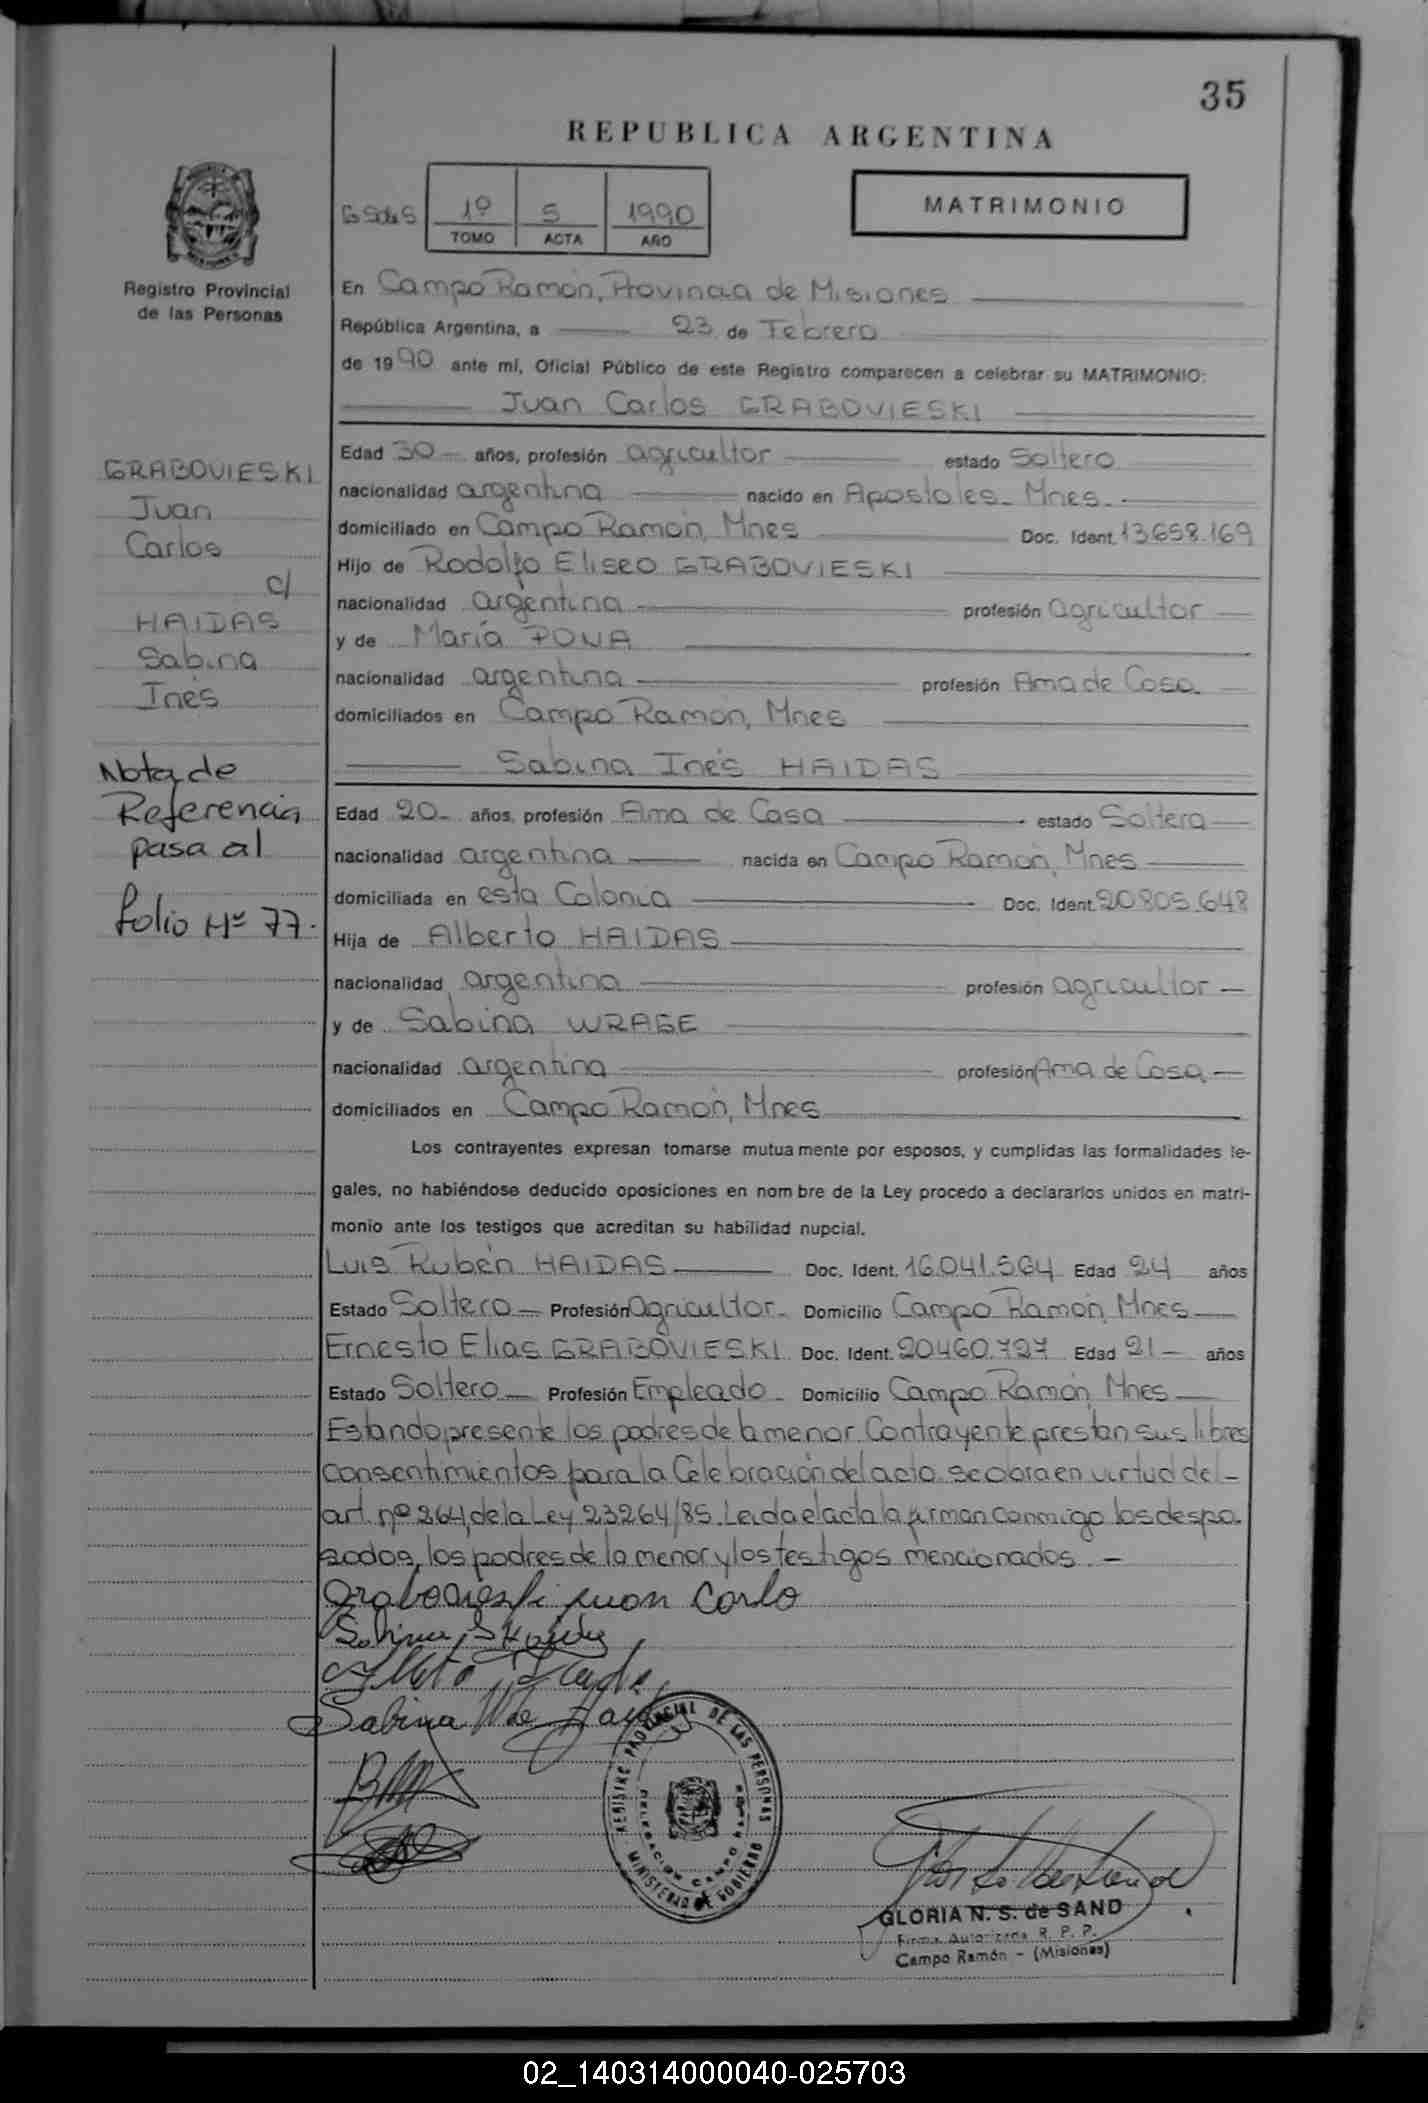 35
REPUBLICA ARGENTINA
1º 5 1990
TOMO ACTA AÑO
MATRIMONIO
Registro Provincial
de las Personas
En Campo Ramón, Provincia de Misiones
República Argentina, a 23 de Febrero
de 1990 ante mí, Oficial Público de este Registro comparecen a celebrar su MATRIMONIO:
Juan Carlos GRABOVIESKI
Edad 30 años, profesión agricultor estado Soltero
nacionalidad argentina nacido en Apostoles - Mnes.
domiciliado en Campo Ramón, Mnes Doc. Ident. 13.658.169
Hijo de Rodolfo Eliseo GRABOVIESKI
nacionalidad argentina profesión agricultor
y de María
nacionalidad argentina profesión Ama de Casa
domiciliados en Campo Ramón, Mnes
Sabina Inés HAIDAS
Edad 20 años, profesión Ama de Casa estado Soltera
nacionalidad argentina nacida en Campo Ramón, Mnes
domiciliada en esta Colonia Doc. Ident. 20.805.648
Hija de Alberto HAIDAS
nacionalidad argentina profesión agricultor
y de Sabina WRAGE
nacionalidad argentina profesión Ama de Casa
domiciliados en Campo Ramón, Mnes
Los contrayentes expresan tomarse mutuamente por esposos, y cumplidas las formalidades le-
gales, no habiéndose deducido oposiciones en nombre de la Ley procedo a declararlos unidos en matri-
monio ante los testigos que acreditan su habilidad nupcial.
Luis Rubén HAIDAS Doc. Ident. 16.041.564 Edad 24 años
Estado Soltero Profesión Agricultor Domicilio Campo Ramón, Mnes
Ernesto Elias GRABOVIESKI Doc. Ident. 20.460.727 Edad 21 años
Estado Soltero Profesión Empleado Domicilio Campo Ramón, Mnes
Estando presente los padres de la menor Contrayente prestan sus libres
consentimientos para la Celebración del acto se obra en virtud del
art. nº 264, de la Ley 23264/85. Leida el acta la firman conmigo los despo
sados, los padres de la menor y los testigos mencionados. -
Grabovieski juan Carlo
Sabina W de
GRABOVIESKI
Juan
Carlos
c/
HAIDAS
Sabina
Inés
Nota de
Referencia
pasa al
folio Nº 77.
REGISTRO PROVINCIAL DE LAS PERSONAS
DELEGACION CAMPO RAMON
MINISTERIO DE GOBIERNO
GLORIA N. S. de SAND
Firma Autorizada R. P. P.
Campo Ramón - (Misiones)
02_140314000040-025703